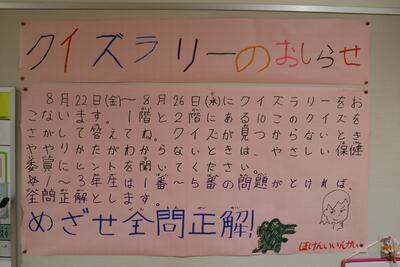 クイズラリーのおしらせ
8月22日(金)~8月26日(水)にクイズラリーをお
こないます。1階と2階にある10このクイズを
さがして答えてね。クイズが見つからないとき
ややりかたがわからないときは、やさしい保健
委員にヒントを聞いてください。
1~3年生は1番~5番の問題がとければ、
全問正解とします。
めざせ全問正解!
ほけんいいんかい